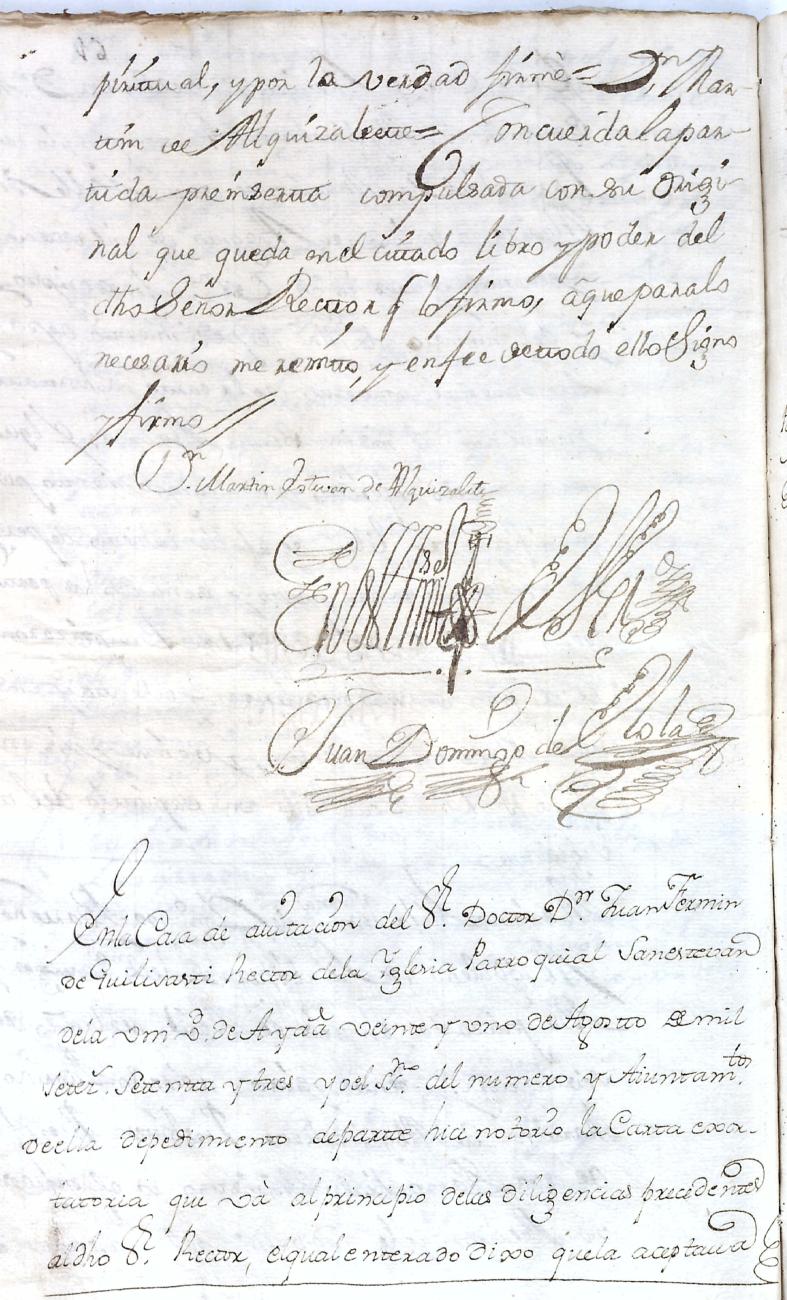 piritual, y por la verdad firmè = Dn, Mar-
tim de Alquizalette = Concuerda la par-
tida preinserta compulsada con su Origi-
nal que queda en el cittado libro y poder del
dho Señor Rector q lo firmo, a que para lo
necesario me remitto, y en fee de ttodo ello Signo
y firmo
Dn. Martin Estevan de Alquizalete
En testimo de Verdad
Juan Domingo de
En la Casa de avitacion del Sr. Doctor Dn. Juan Fermin
de Guilisasti Rector de la Yglesia Parroquial San estevan
de la Vniv.d de Aya à veinte y uno de Agosto de mil
setez. setenta y tres yo el SSno. del numero y Aiuntamto.
de ella de pedimiento de parte hice notorio la Carta exor-
tatoria que và al principio de las diligencias precedentes
al dho Sr. Rector, el qual enterado dixo que la aceptava